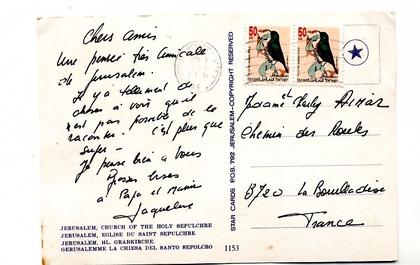 Chers amis
Une pensée très amicale
de Jerusalem.
Il y a tellement de
choses à voir qu'il
n'est pas possible de le
raconter. C'est plus que
super -
Je pense bien à vous
Grosses bises
à Papa et Mamie
Jacqueline
JERUSALEM, CHURCH OF THE HOLY SEPULCHRE
JERUSALEM, EGLISE DU SAINT SEPULCHRE
JERUSALEM, HL. GRABKIRCHE.
GERUSALEMME LA CHIESA DEL SANTO SEPOLCRO
1153
STAR CARDS P.O.B. 792 JERUSALEM-COPYRIGHT RESERVED
50
50
Chemin des
13720 La Bouilladisse
France